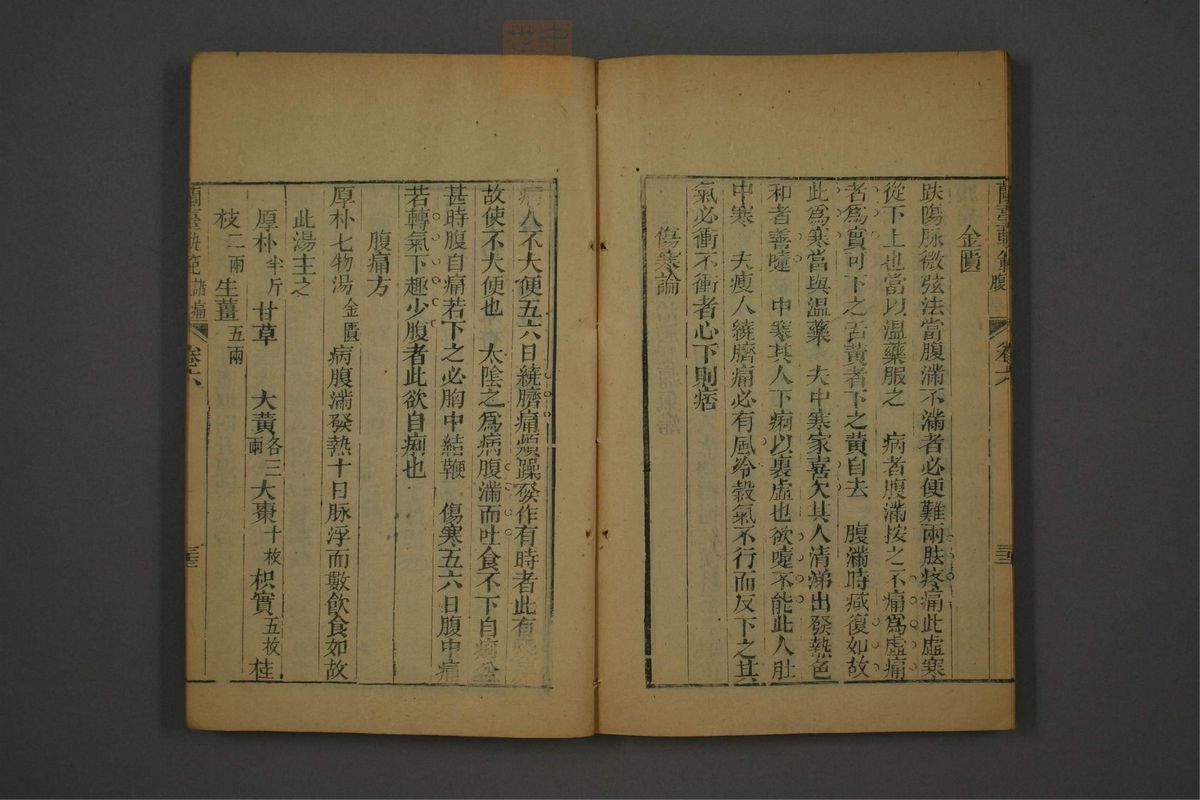 蘭臺軌範 腹 卷六 三三
金匱
趺陽脉微弦法當腹滿不滿者必便難兩胠疼痛此虛寒
從下上也當以溫藥服之 病者腹滿按之不痛爲虛痛
者爲實可下之舌黃者下之黃自去 腹滿時減復如故
此爲寒當與溫藥 夫中寒家喜欠其人清涕出發熱色
和者善嚏 中寒其人下痢以裏虛也欲嚏不能此人肚
中寒 夫瘦人繞臍痛必有風冷穀氣不行而反下之其
氣必衝不衝者心下則痞
傷寒論
病人不大便五六日繞臍痛煩躁發作有時者此有
故使不大便也 太陰之爲病腹滿而吐食不下自痢益
甚時腹自痛若下之必胸中結鞭 傷寒五六日腹中痛
若轉氣下趣少腹者此欲自痢也
腹痛方
厚朴七物湯 金匱 病腹滿發熱十日脉浮而數飲食如故
此湯主之
厚朴半斤 甘草 大黃各三兩 大棗十枚 枳實五枚 桂
枝二兩 生薑五兩
蘭臺軌範 諸痛 卷六 三三